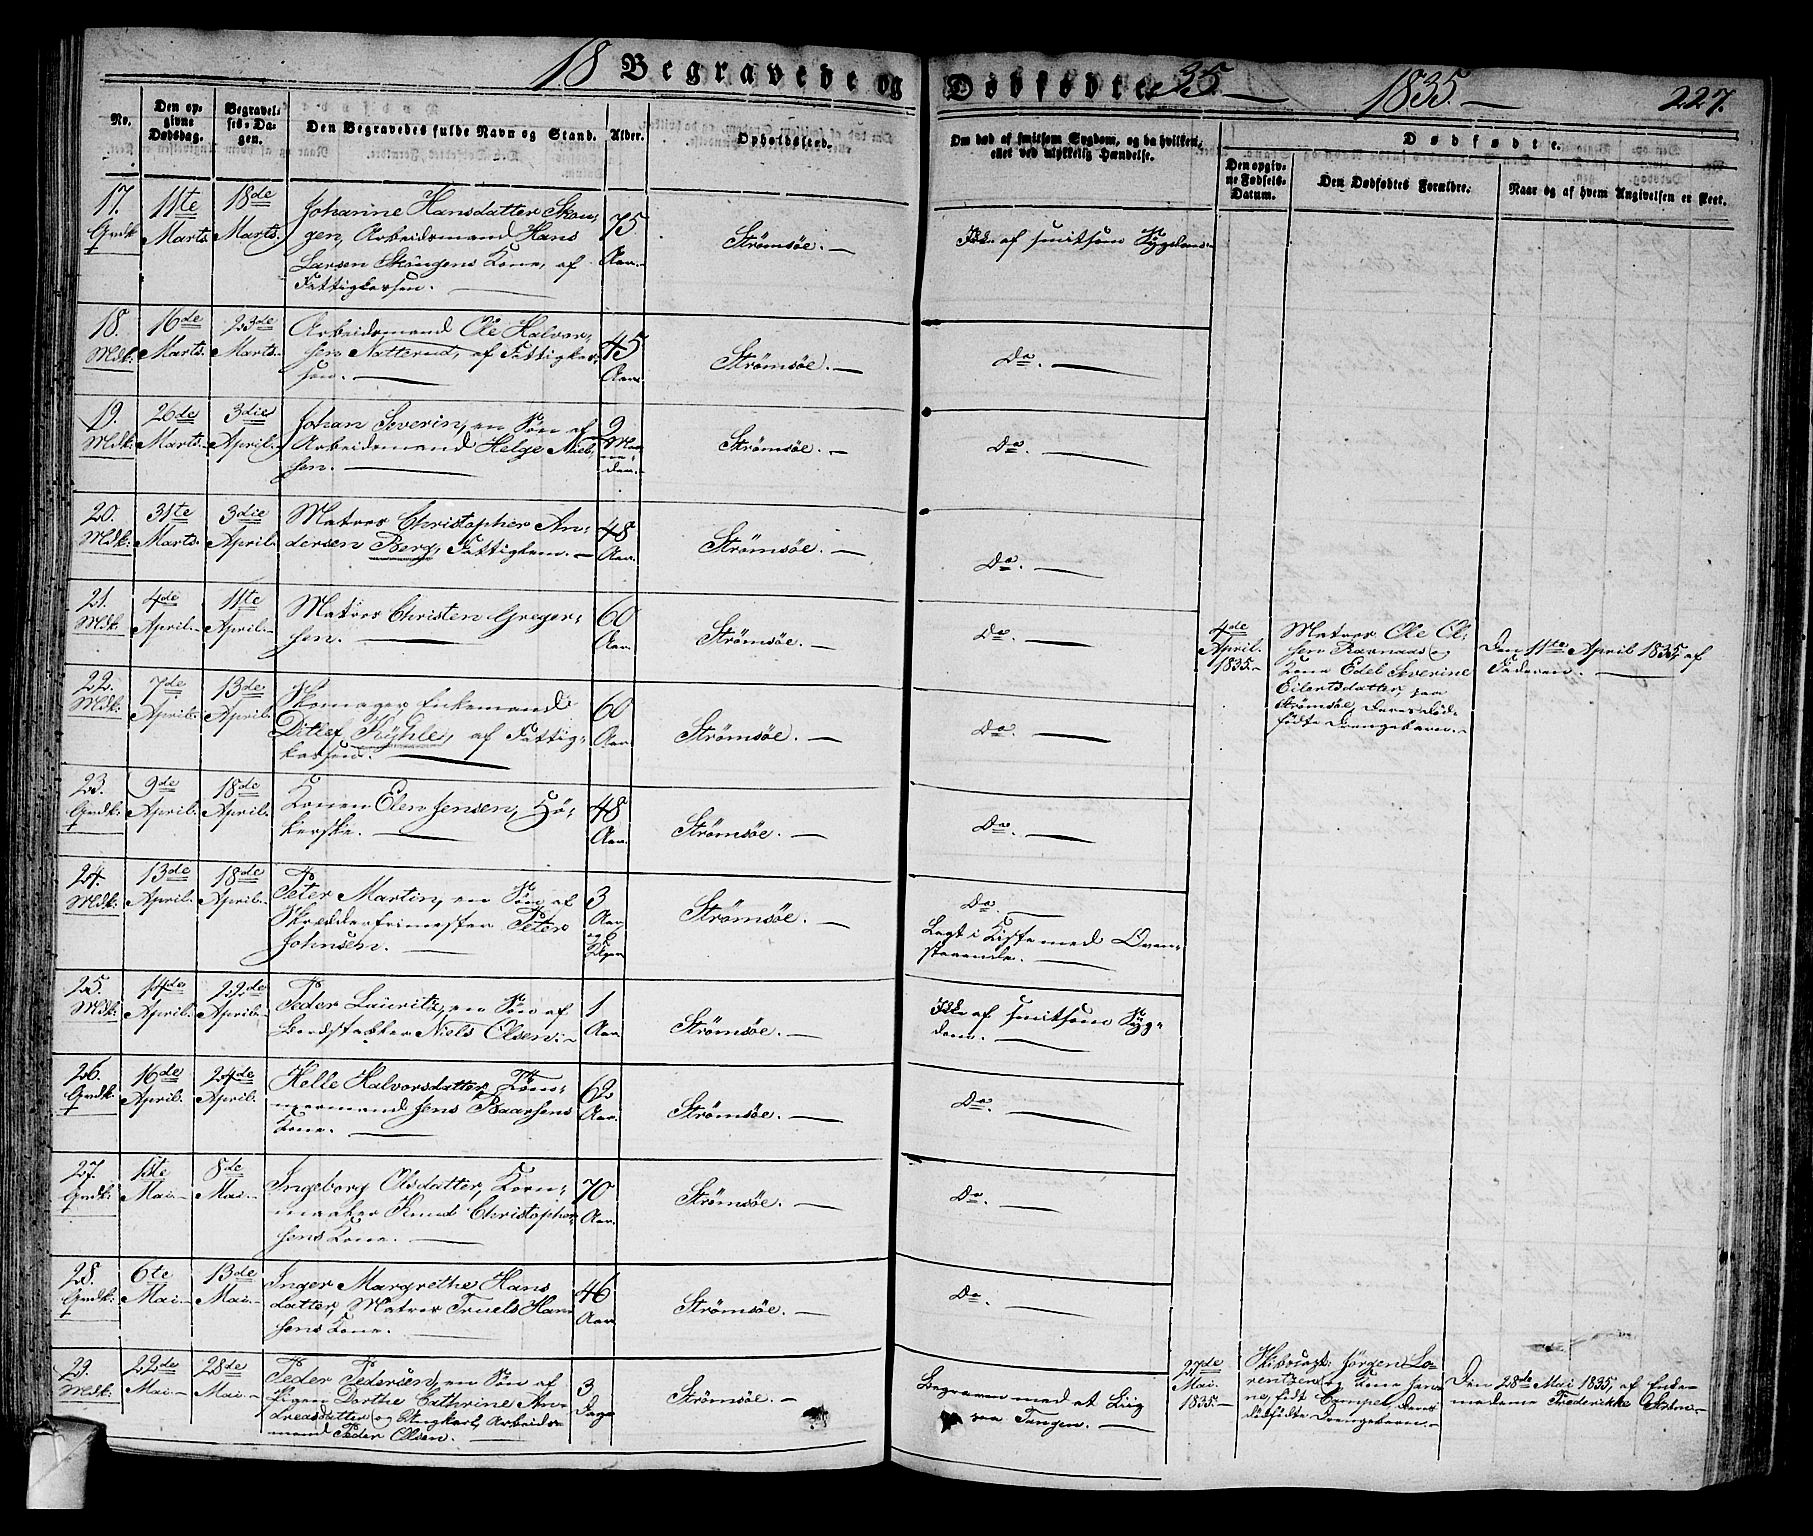 18 Begravede og Dødfødte 35.
1835.
227.
No.
Den opgivne Dødsdag.
Begravelses-Dagen.
Den Begravedes fulde Navn og Stand.
Alder.
Opholdssted.
Om død af smitsom Sygdom, og da hvilken,
eller ved ulykkelig Hændelse.
Dødfødte.
Den opgivne Fødsels-Datum.
Den Dødfødtes Forældre.
Naar og af hvem Angivelsen er skeet.
17. Qvdk:
11te Marts.
18de Marts.
Johanne Hansdatter Skou-
gen, Arbeidsmand Hans
Larsen Skougens Kone, af
Fattigkassen.
75 Aar.
Strømsøe.
Ikke af smitsom Sygdom.
18. Mdk:
16de Marts.
23de Marts.
Arbeidsmand Ole Halvor-
sen Natterud, af Fattigkas-
sen.
45 Aar.
Strømsøe.
Do.
19. Mdk:
26de Marts.
3die April.
Johan Severin, en Søn af
Arbeidsmand Helge Niel-
sen.
9 Maaneder.
Strømsøe.
Do.
20. Mdk:
31te Marts.
3die April.
Matros Christopher An-
dersen Berg, Fattiglem.
48 Aar.
Strømsøe.
Do.
21. Mdk:
4de April.
11te April.
Matros Christen Greger-
sen.
60 Aar.
Strømsøe.
Do.
4de
April.
1835.
Matros Ole Ol-
sen Ravnaas og
Kone Edel Severine
Eilertsdatter, paa
Strømsøe, deres død-
fødte Drengebarn.
Den 11te April 1835, af
Faderen.
22. Mdk:
7de April.
13de April.
Skomager Enkemand
Ditlef Kyhle, af Fattig-
kassen.
60 Aar.
Strømsøe.
Do.
23. Qvdk:
9de April.
18de April.
Konen Elen Jensen, Hø-
kerske.
48 Aar.
Strømsøe.
Do.
24. Mdk:
13de April.
18de April.
Peter Martin, en Søn af
Skrædderfrimester Peter
Johnsen.
3 Aar og 6
Strømsøe.
Do.
Lagt i Kiste med Oven-
staaende.
25. Mdk:
14de April.
22de April.
Peder Lauritz, en Søn af
Niels Olsen.
1 Aar.
Strømsøe.
Ikke af smitsom Syg-
dom.
26. Qvdk:
16de April.
24de April.
Helle Halvorsdatter, Tøm-
mermand Jens Baarsens
Kone.
62 Aar.
Strømsøe.
Do.
27. Qvdk:
1ste Mai.
8de Mai.
Ingeborg Olsdatter, Korn-
maaler Knud Christopher-
sens Kone.
70 Aar.
Strømsøe.
Do.
28. Qvdk:
6te Mai.
13de Mai.
Inger Margrethe Hans
datter, Matros Truels Han
sens Kone.
46 Aar.
Strømsøe.
Do.
29. Mdk:
22de Mai.
28de Mai.
Peder Pedersen, en Søn af
Pigen Dorthe Cathrine An-
dreasdatter og Ungkarl, Arbeids-
mand Peder Olsen.
3 Dage
Strømsøe.
Begraven med et Liig
paa Tangen.
27de
Mai.
1835.
Jørgen Lo-
rentzen og Kone Jana
ne, født Campel, deres
dødfødte Drengebarn.
Den 28de Mai 1835, af Jorde-
moderne Frederikke Holm